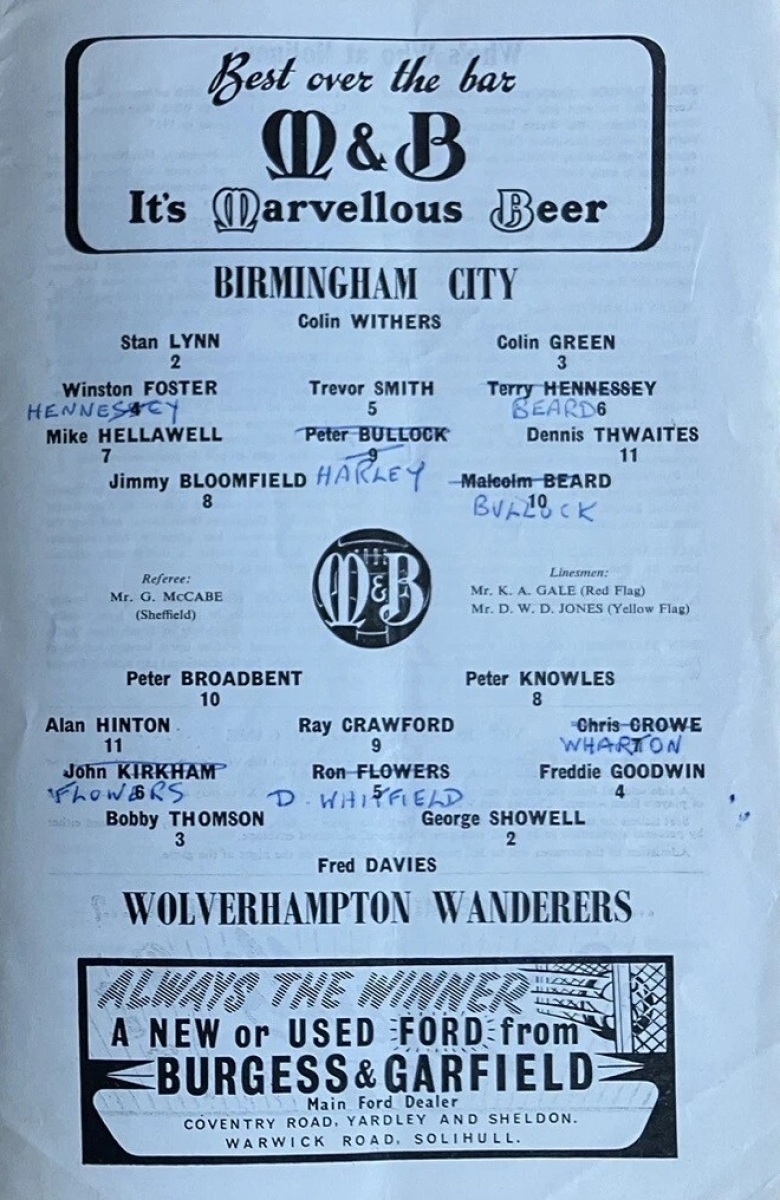 Best over the bar
M & B
It's Marvellous Beer
BIRMINGHAM CITY
Colin WITHERS
Stan LYNN Colin GREEN
2 3
Winston FOSTER Trevor SMITH Terry HENNESSEY
HENNESSEY 4 5 BEARD 6
Mike HELLAWELL Peter BULLOCK Dennis THWAITES
7 9 11
HARLEY
Jimmy BLOOMFIELD Malcolm BEARD
8 10
BULLOCK
M & B
Referee: Linesmen:
Mr. G. McCABE Mr. K. A. GALE (Red Flag)
(Sheffield) Mr. D. W. D. JONES (Yellow Flag)
Peter BROADBENT Peter KNOWLES
10 8
Alan HINTON Ray CRAWFORD Chris CROWE
11 9 7
WHARTON
John KIRKHAM Ron FLOWERS Freddie GOODWIN
6 5 4
FLOWERS D. WHITFIELD
Bobby THOMSON George SHOWELL
3 2
Fred DAVIES
WOLVERHAMPTON WANDERERS
ALWAYS THE WINNER
A NEW or USED FORD from
BURGESS & GARFIELD
Main Ford Dealer
COVENTRY ROAD, YARDLEY AND SHELDON.
WARWICK ROAD, SOLIHULL.